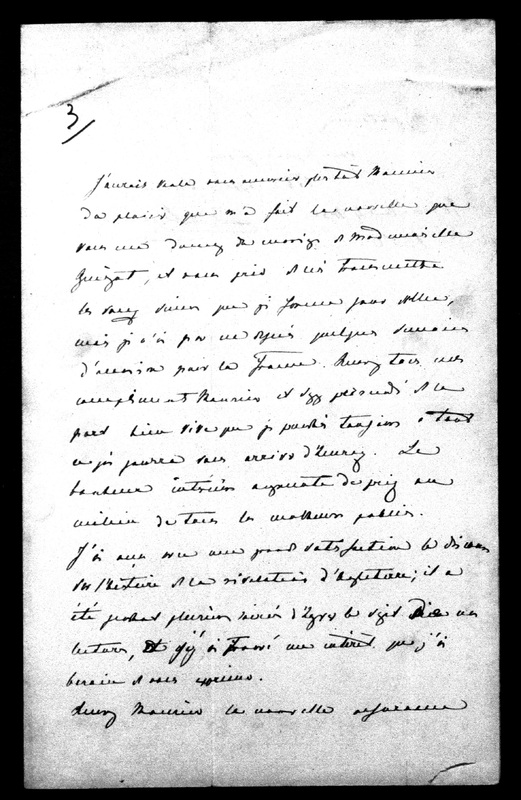 3
J'aurais voulu vous remercier plus tôt Monsieur
du plaisir que m'a fait la nouvelle que
vous me donnez du mariage de Mademoiselle
Guizot, et vous prier de lui transmettre
les vœux que je forme pour elle,
mais je n'ai pas eu depuis quelques semaines
d'occasion pour la France. Recevez tous mes
compliments Monsieur et soyez persuadé de la
part bien vive que je prendrai toujours à tout
ce qui pourra vous arriver d'heureux. Le
bonheur intérieur augmente de prix au
milieu de tous les malheurs publics.
J'ai avec une grande satisfaction le discours
sur l'histoire de la révolution d'Angleterre; il a
été pendant plusieurs soirées le sujet de nos
lectures, et j'y ai trouvé un intérêt que j'ai
besoin de vous exprimer.
Recevez Monsieur la nouvelle assurance